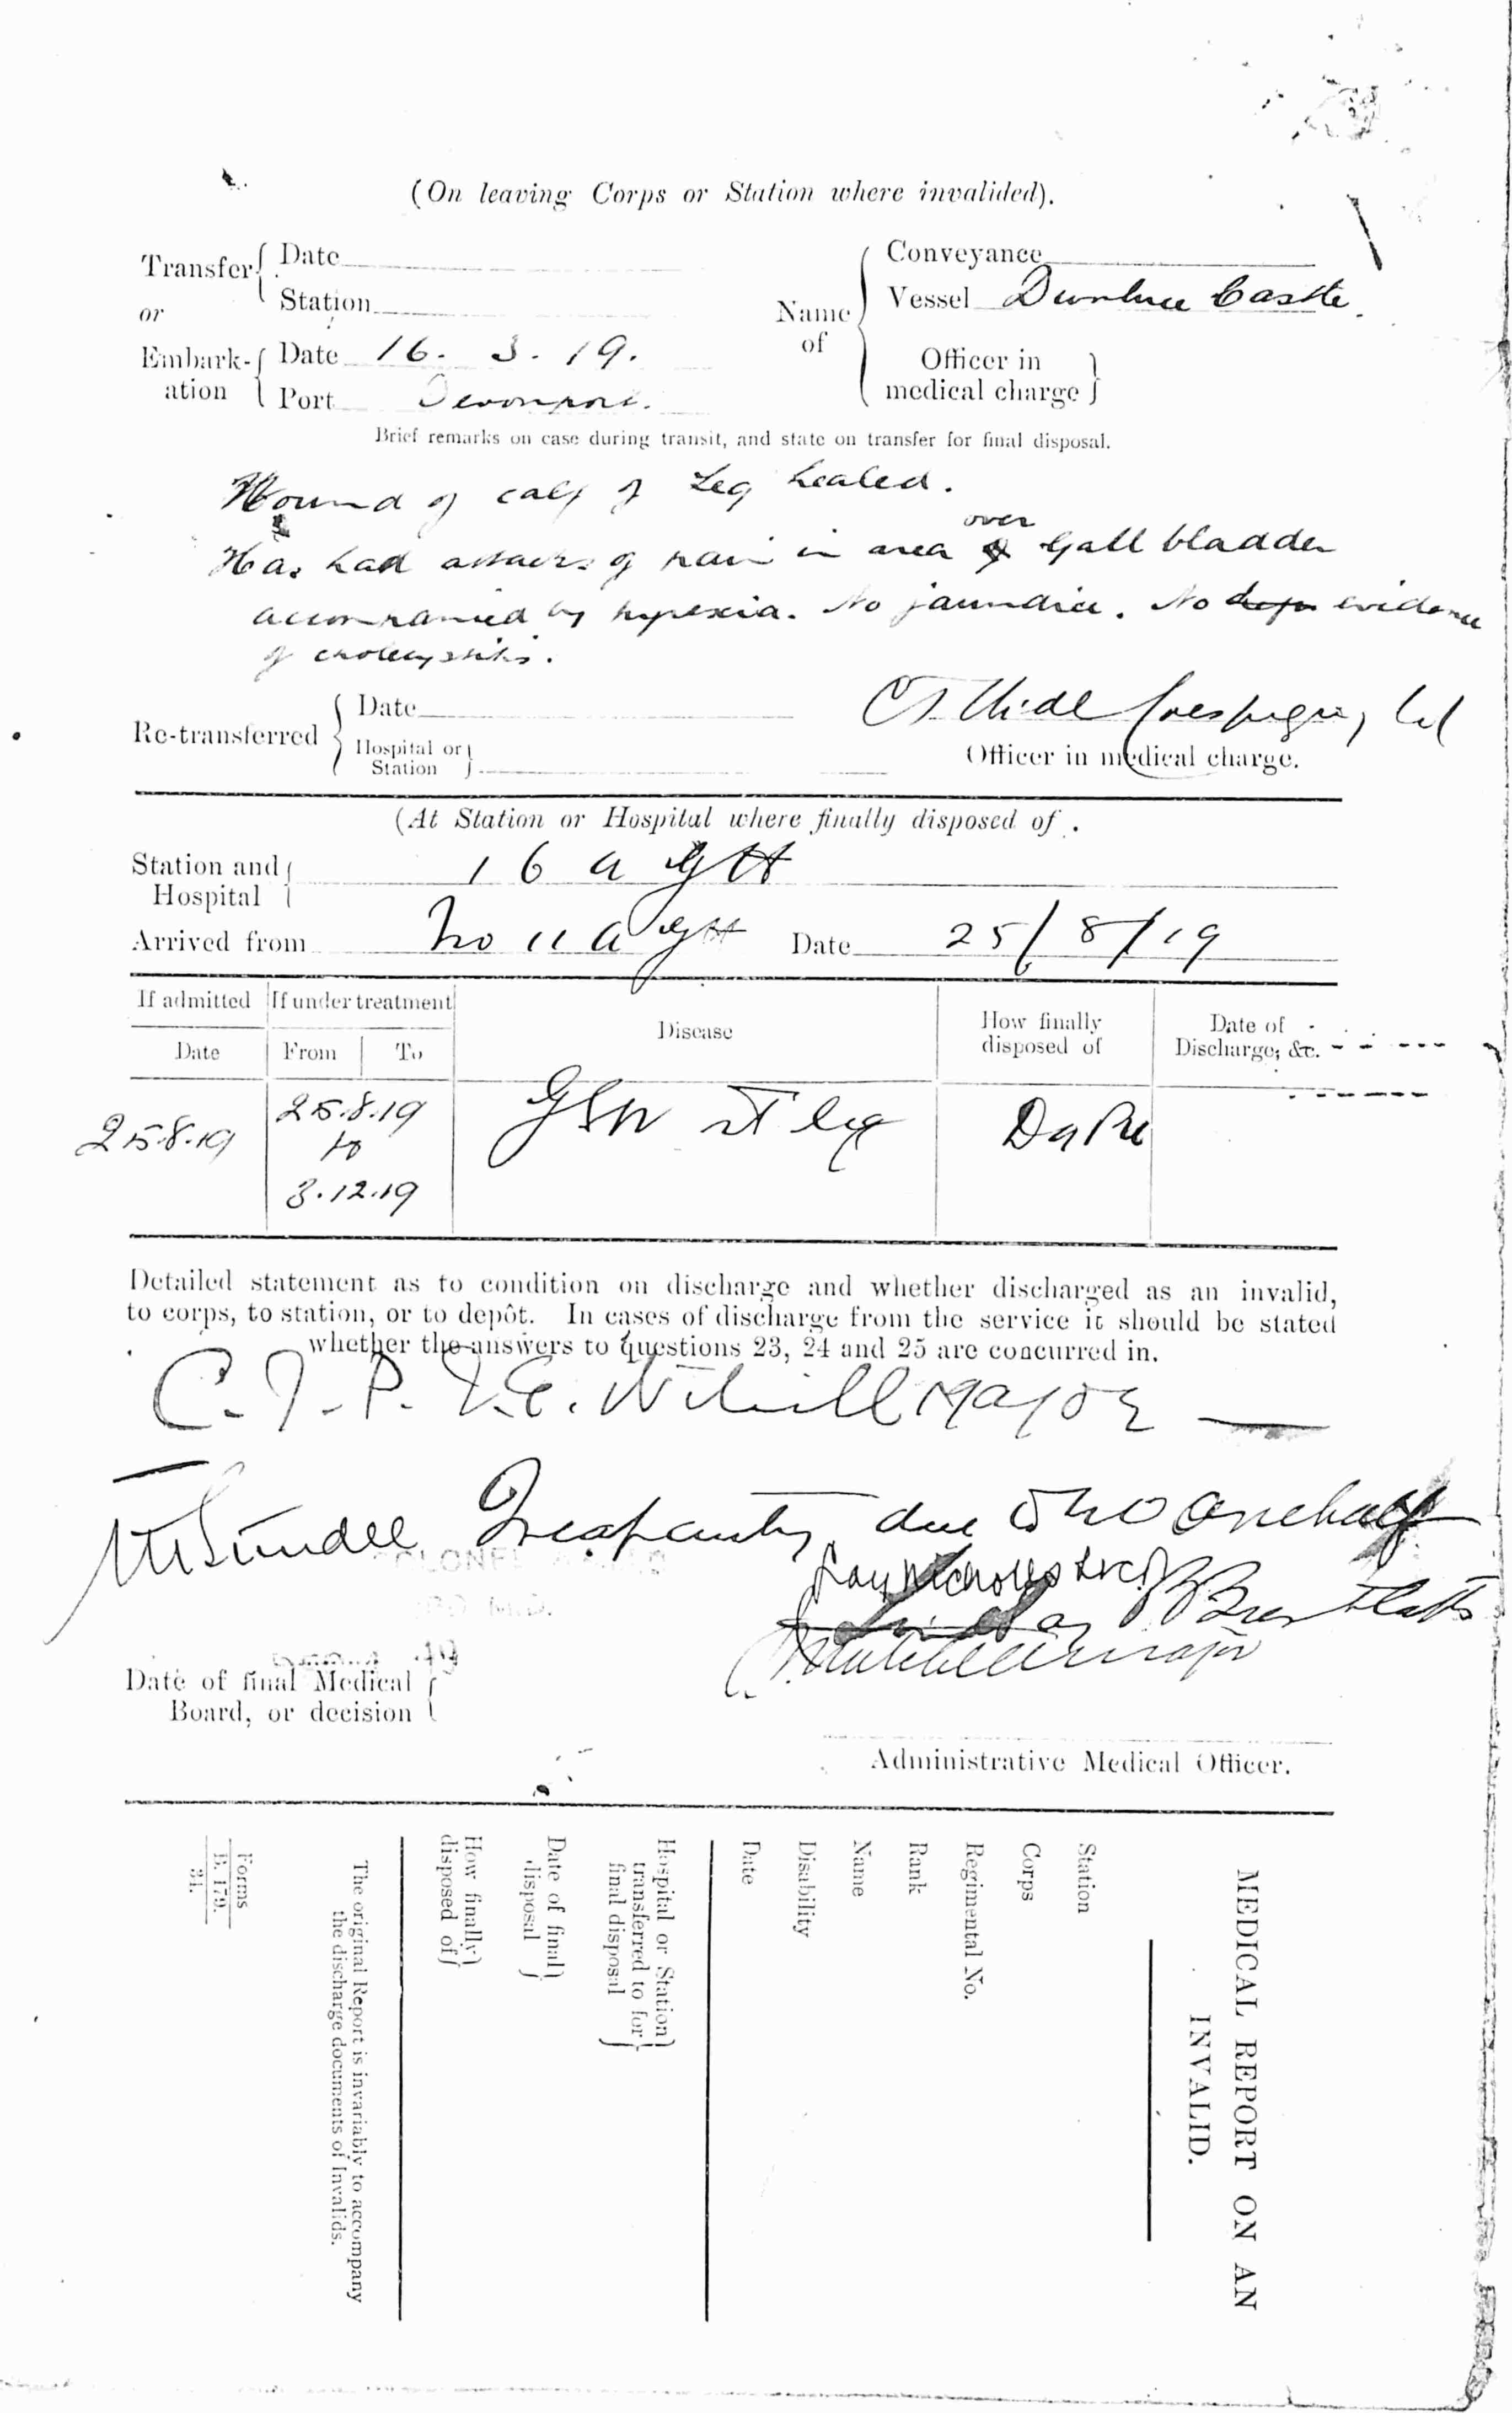 (On leaving Corps or Station where invalided).
Transfer Date
Station
or
Embarkation Date 16. 3. 19.
Port Devonport.
Name of Conveyance
Vessel Dunluce Castle.
Officer in medical charge
Brief remarks on case during transit, and state on transfer for final disposal.
Wound of calf of Leg healed.
Has had attacks of pain in area over Gall bladder
accompanied by pyrexia. No jaundice. No evidence
of cholecystitis.
Re-transferred Date
Hospital or Station
Officer in medical charge.
(At Station or Hospital where finally disposed of.
Station and Hospital 16 A G H
Arrived from No 11 A G H Date 25/8/19
If admitted If under treatment Disease How finally disposed of Date of Discharge, &c.
Date From To
25.8.19 25.8.19 to 3.12.19 GSW leg
Detailed statement as to condition on discharge and whether discharged as an invalid,
to corps, to station, or to depôt. In cases of discharge from the service it should be stated
whether the answers to questions 23, 24 and 25 are concurred in.
Major
Incapacity due one half
COLONEL
Major
Date of final Medical
Board, or decision
Administrative Medical Officer.
MEDICAL REPORT ON AN
INVALID.
Station
Corps
Regimental No.
Rank
Name
Disability
Date
Hospital or Station
transferred to for
final disposal
Date of final
disposal
How finally
disposed of
The original Report is invariably to accompany
the discharge documents of Invalids.
Forms
B. 179.
31.